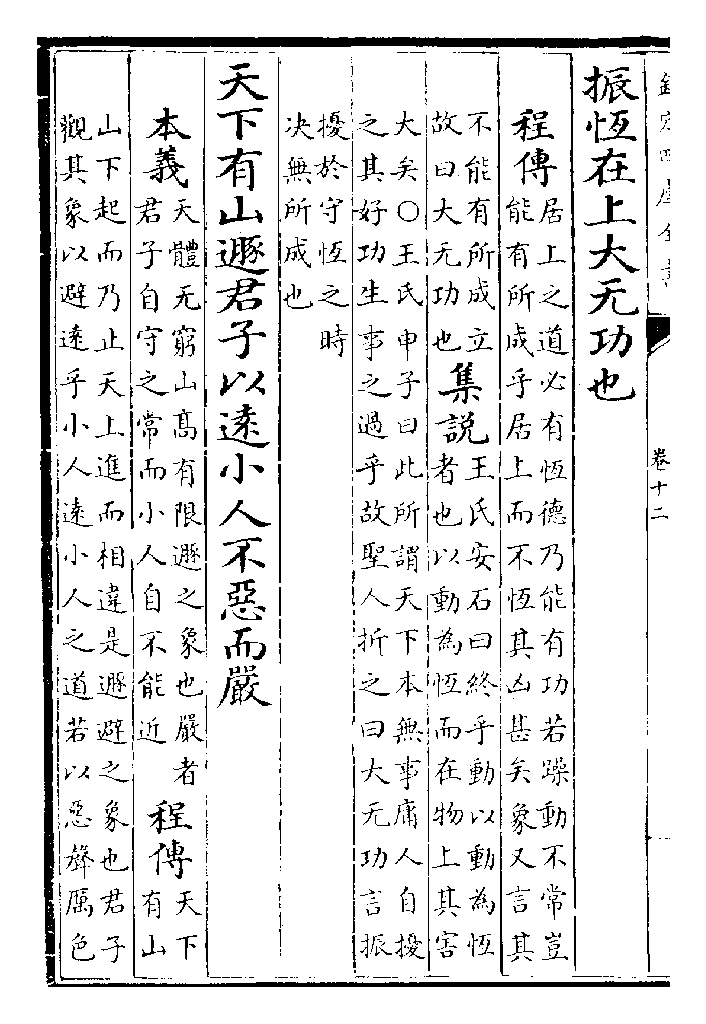 欽定四庫全書
卷十二
振恆在上大无功也
程傳
居上之道必有恆德乃能有功若躁動不常豈
能有所成乎居上而不恆其凶甚矣象又言其
不能有所成立
故曰大无功也
集説
王氏安石曰終乎動以動為恆
者也以動為恆而在物上其害
大矣○王氏申子曰此所謂天下本無事庸人自擾
之其好功生事之過乎故聖人折之曰大无功言振
擾於守恆之時
决無所成也
天下有山遯君子以遠小人不惡而嚴
本義
天體无窮山髙有限遯之象也嚴者
君子自守之常而小人自不能近
程傳
天下
有山
山下起而乃止天上進而相違是遯避之象也君子
觀其象以避遠乎小人遠小人之道若以惡聲厲色